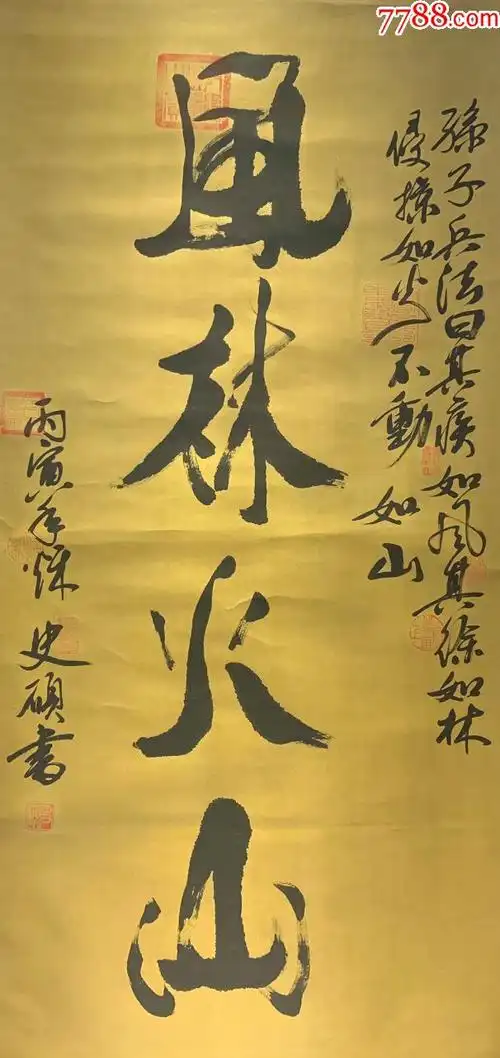 7788.com
孫子兵法曰其疾如風其徐如林
侵掠如火不動如山
風林火山
丙寅年秋
史碩書